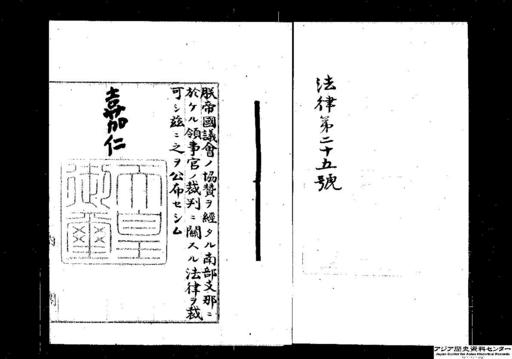 法律第二十五號
朕帝國議會ノ協贊ヲ經タル南部支那ニ
於ケル領事官ノ裁判ニ關スル法律ヲ裁
可シ茲ニ之ヲ公布セシム
嘉仁
天皇
御璽
アジア歴史資料センター
Japan Center for Asian Historical Records